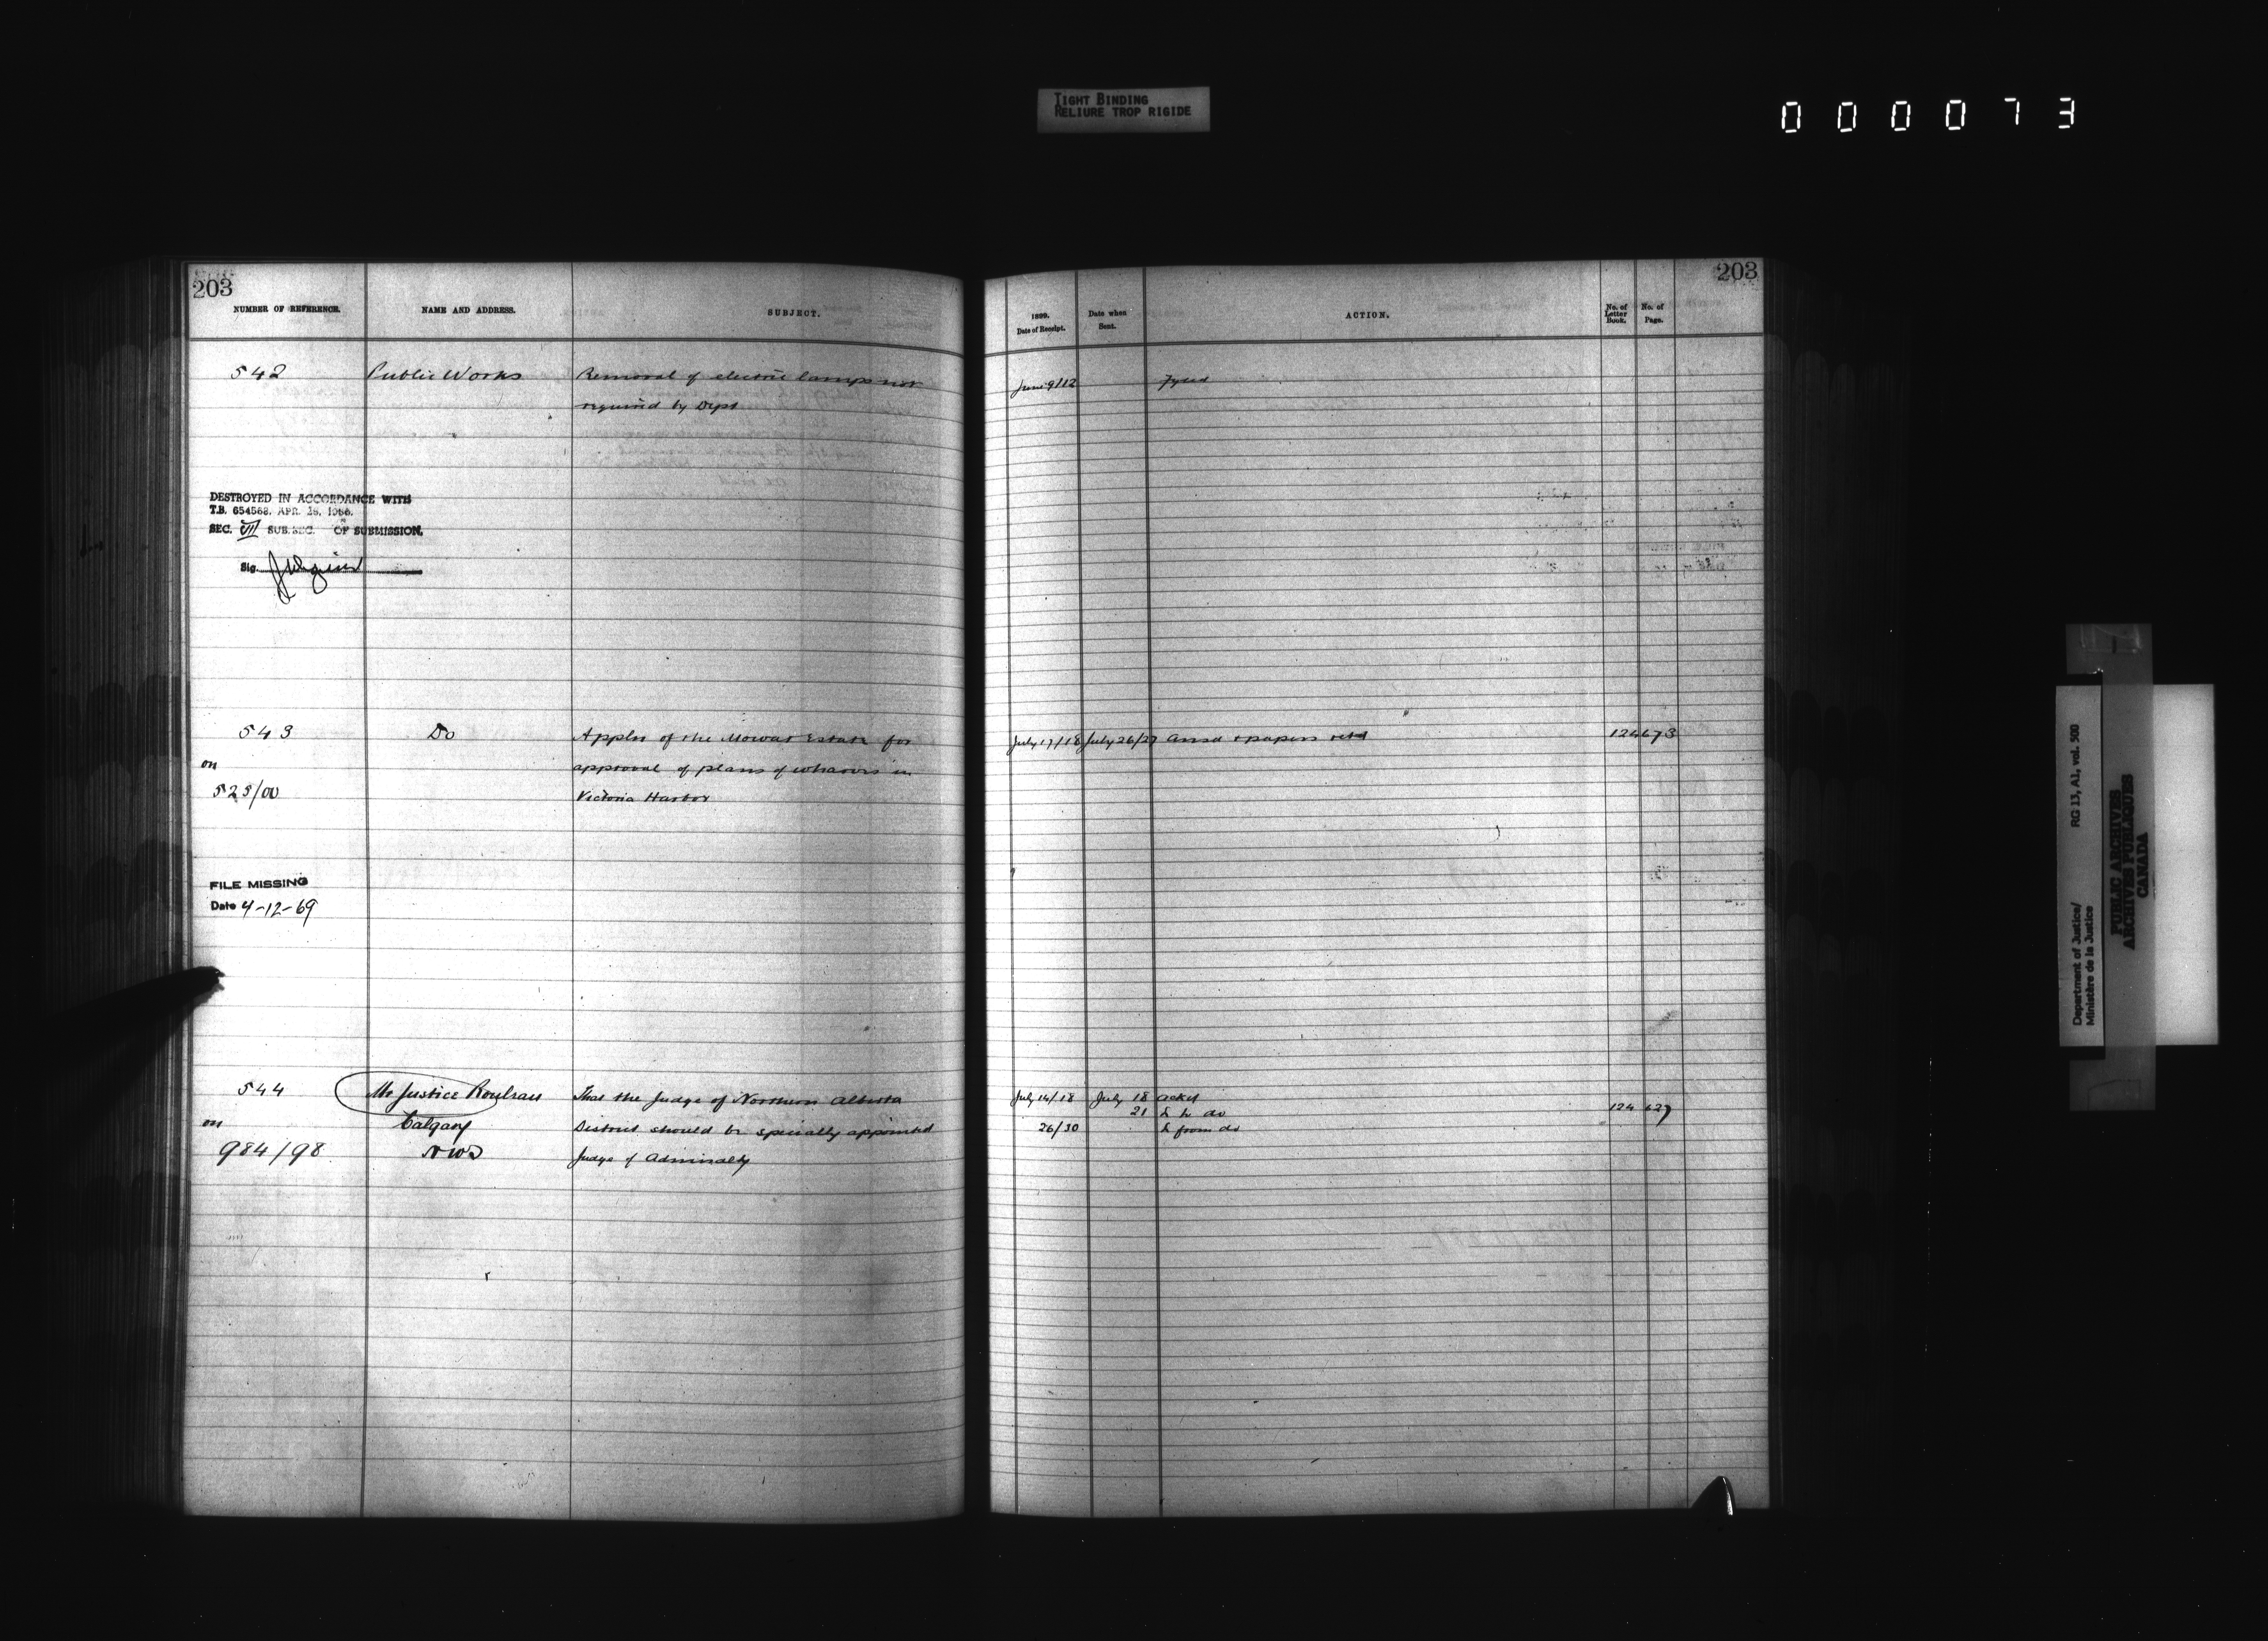 TIGHT BINDING
RELIURE TROP RIGIDE
0 0 0 0 7 3
203
NUMBER OF REFERENCE. NAME AND ADDRESS. SUBJECT.
542 Public Works Removal of electric lamps not
required by Dept
DESTROYED IN ACCORDANCE WITH
T.B. 654568, APR. 28, 1966.
SEC. VII SUB.SEC. OF SUBMISSION.
Sig.
543 Do Appln of the Mowat Estate for
on approval of plans of wharves in
525/00 Victoria Harbor
FILE MISSING
Date 4-12-69
544 Mr Justice Rouleau That the Judge of Northern Alberta
on Calgary District should be specially appointed
984/98 NWT Judge of Admiralty
203
1899. Date of Receipt. Date when Sent. ACTION. No. of Letter Book. No. of Page.
June 9/12 Fyled
July 17/18 July 26/27 Ansd & papers retd 124 673
July 14/18 July 18 Acked
21 L to do 124 627
26/30 L from do
Department of Justice/ RG 13, A1, vol. 500
Ministère de la Justice
PUBLIC ARCHIVES
ARCHIVES PUBLIQUES
CANADA